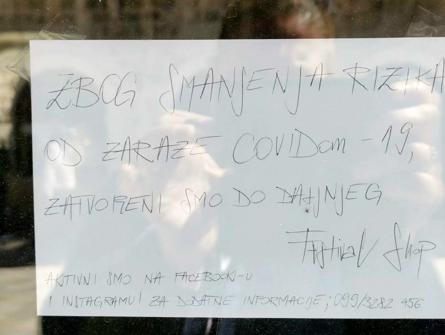 ZBOG SMANJENJA RIZIKA
OD ZARAZE COVIDom-19,
ZATVORENI SMO DO DALJNJEG
Festival Shop
AKTIVNI SMO NA FACEBOOK-U
I INSTAGRAMU ZA DODATNE INFORMACIJE; 099/3282 456